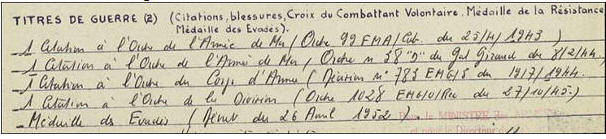 TITRES DE GUERRE (2) (Citations, blessures, Croix du Combattant Volontaire, Médaille de la Résistance
Médaille des Evadés).
1 Citation à l'Ordre de l'Armée de Mer (Ordre 99 EMA/Cab. du 23/4/1943)
1 Citation à l'Ordre de l'Armée de Mer (Ordre n° 38 "D" du Gal Giraud du 8/2/44)
1 Citation à l'Ordre du Corps d'Armée (Décision n° 783 EMG/S du 19/7/1944.
1 Citation à l'Ordre de la Division (Ordre 1028 EMG/O/Rec du 27/10/45.)
- Médaille des Evadés (Décret du 26 Avril 1952).
le MINISTRE
et pour le Directeur